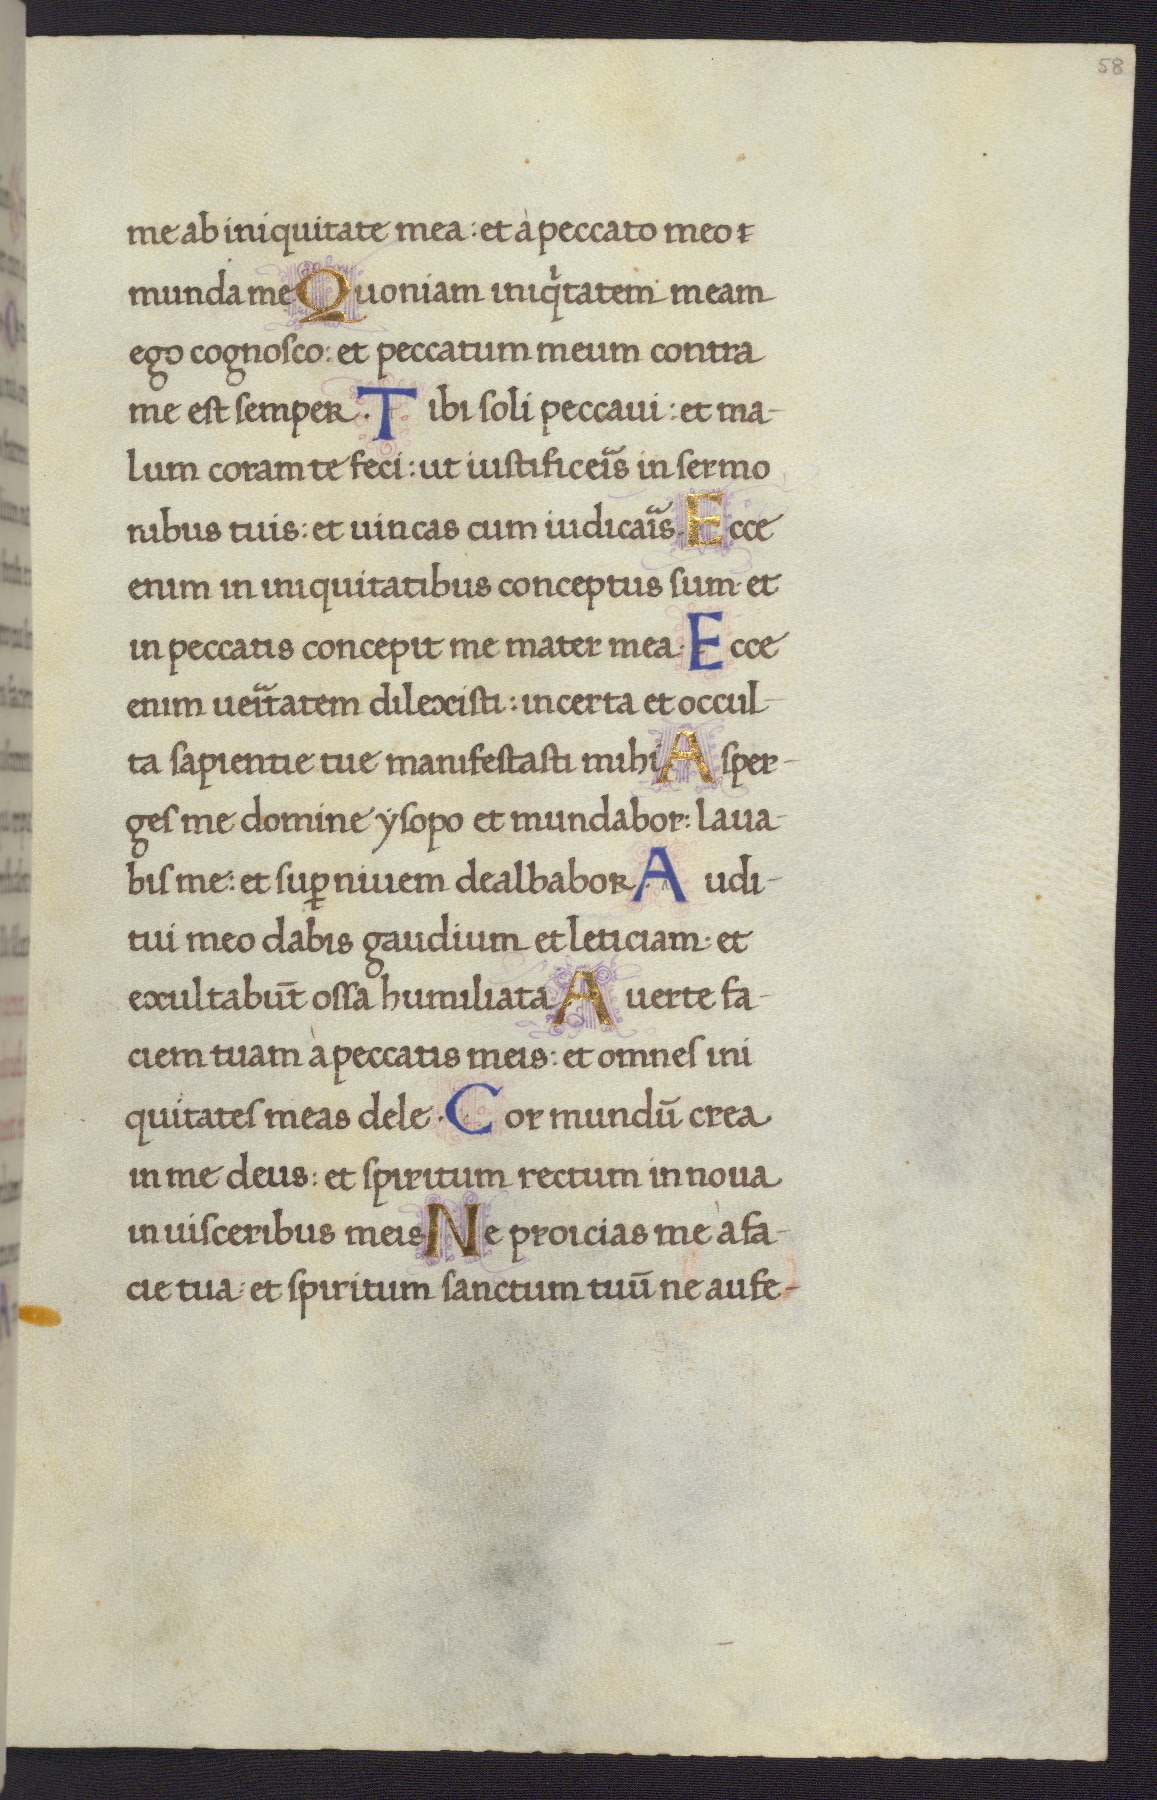 58
me ab iniquitate mea: et à peccato meo
munda me Quoniam iniq̇tatem meam
ego cognoſco: et peccatum meum contra
me eſt ſemper. Tibi ſoli peccaui: et ma-
lum coram te feci: ut iuſtificeı̃s in ſermo
nibus tuis: et uincas cum iudicaı̃s. Ecce
enim in iniquitatibus conceptus ſum: et
in peccatis concepit me mater mea. Ecce
enim ueı̃tatem dilexiſti: incerta et occul-
ta ſapientie tue manifeſtaſti mihi Aſper-
geſ me domine ẏſopo et mundabor: laua-
biſ me: et ſuꝑ niuem dealbabor. Audi-
tui meo dabis gaudium et leticiam: et
exultabūt oſſa humiliata Auerte fa-
ciem tuam à peccatis meis: et omneſ ini
quitateſ meas dele. Cor mundū crea
in me deus: et ſpiritum rectum innoua
in uiſceribus meis Ne proicias me à fa-
cie tua: et ſpiritum ſanctum tuū ne aufe-